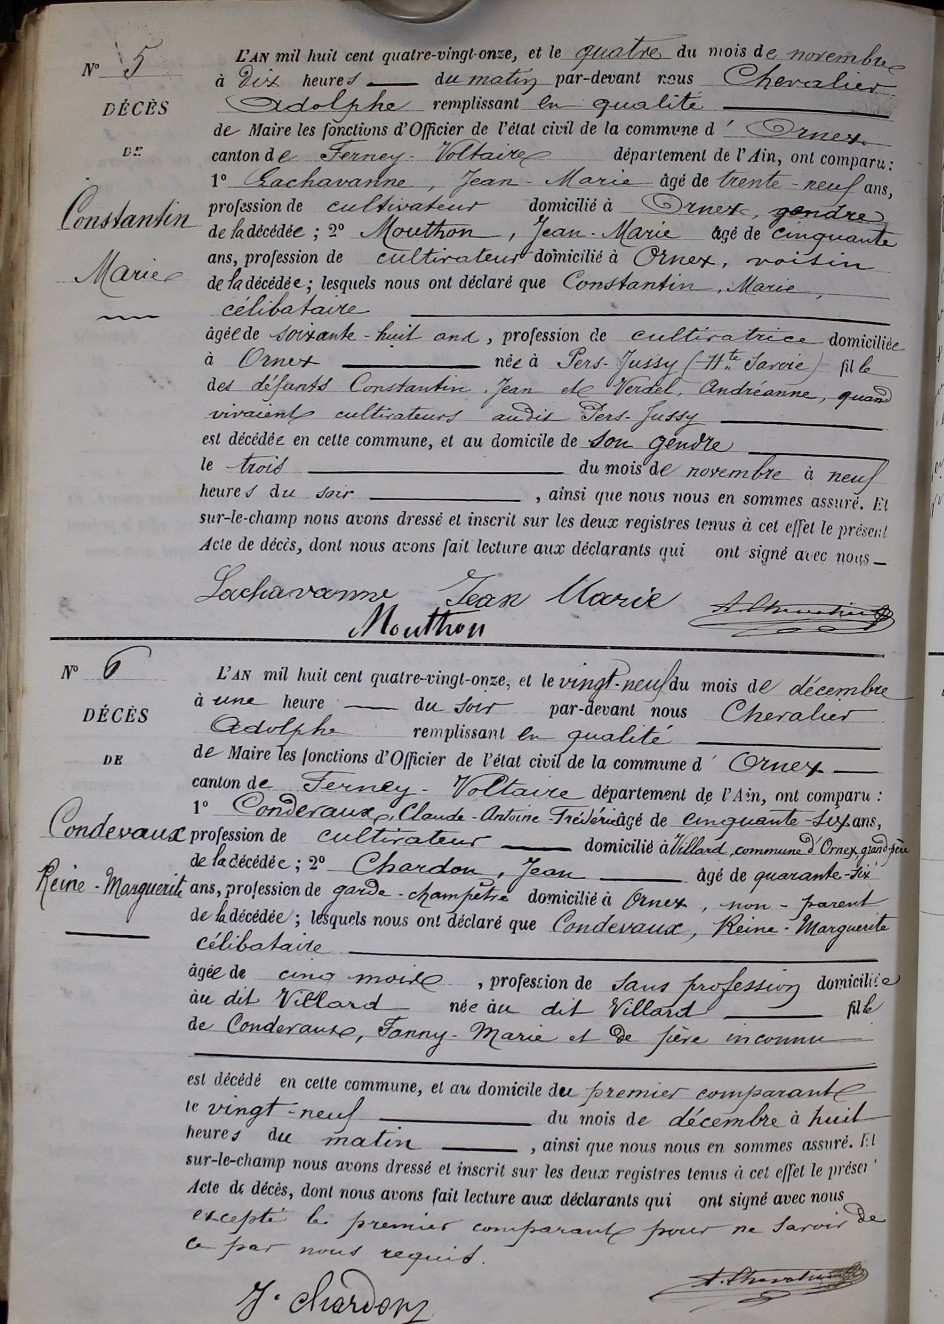 N° 5
DÉCÈS
DE
Constantin
Marie
L'AN mil huit cent quatre-vingt-onze, et le quatre du mois de novembre
à Dix heures du matin par-devant nous Chevalier
Adolphe remplissant en qualité
de Maire les fonctions d'Officier de l'état civil de la commune d' Ornex
canton de Ferney-Voltaire département de l'Ain, ont comparu :
1° Lachavanne, Jean-Marie âgé de trente-neuf ans,
profession de cultivateur domicilié à Ornex, gendre
de la décédée ; 2° Mouthon, Jean-Marie âgé de cinquante
ans, profession de cultivateur domicilié à Ornex, voisin
de la décédée ; lesquels nous ont déclaré que Constantin, Marie,
célibataire
âgée de soixante-huit ans, profession de cultivatrice domiciliée
à Ornex née à Pers-Jussy (Hte Savoie) fille
des défunts Constantin, Jean et Verdel, Andréanne, quand
vivaient cultivateurs audit Pers-Jussy
est décédée en cette commune, et au domicile de son gendre
le trois du mois de novembre à neuf
heures du soir, ainsi que nous nous en sommes assuré. Et
sur-le-champ nous avons dressé et inscrit sur les deux registres tenus à cet effet le présent
Acte de décès, dont nous avons fait lecture aux déclarants qui ont signé avec nous
Lachavanne Jean Marie
Mouthon
N° 6
DÉCÈS
DE
Condevaux
Reine-Marguerite
L'AN mil huit cent quatre-vingt-onze, et le vingt-neuf du mois de décembre
à une heure du soir par-devant nous Chevalier
Adolphe remplissant en qualité
de Maire les fonctions d'Officier de l'état civil de la commune d' Ornex
canton de Ferney-Voltaire département de l'Ain, ont comparu :
1° Condevaux, Claude-Antoine-Frédéric âgé de cinquante-six ans,
profession de cultivateur domicilié à Villard, commune d'Ornex, grand-père
de la décédée ; 2° Chardon, Jean âgé de quarante-six
ans, profession de garde-champêtre domicilié à Ornex, non-parent
de la décédée ; lesquels nous ont déclaré que Condevaux, Reine-Marguerite
célibataire
âgée de cinq mois, profession de sans profession domiciliée
au dit Villard née au dit Villard fille
de Condevaux, Fanny-Marie et de père inconnu
est décédé en cette commune, et au domicile du premier comparant
le vingt-neuf du mois de décembre à huit
heures du matin, ainsi que nous nous en sommes assuré. Et
sur-le-champ nous avons dressé et inscrit sur les deux registres tenus à cet effet le présent
Acte de décès, dont nous avons fait lecture aux déclarants qui ont signé avec nous
excepté le premier comparant pour ne savoir de
ce par nous requis.
J. Chardon
A. Chevalier